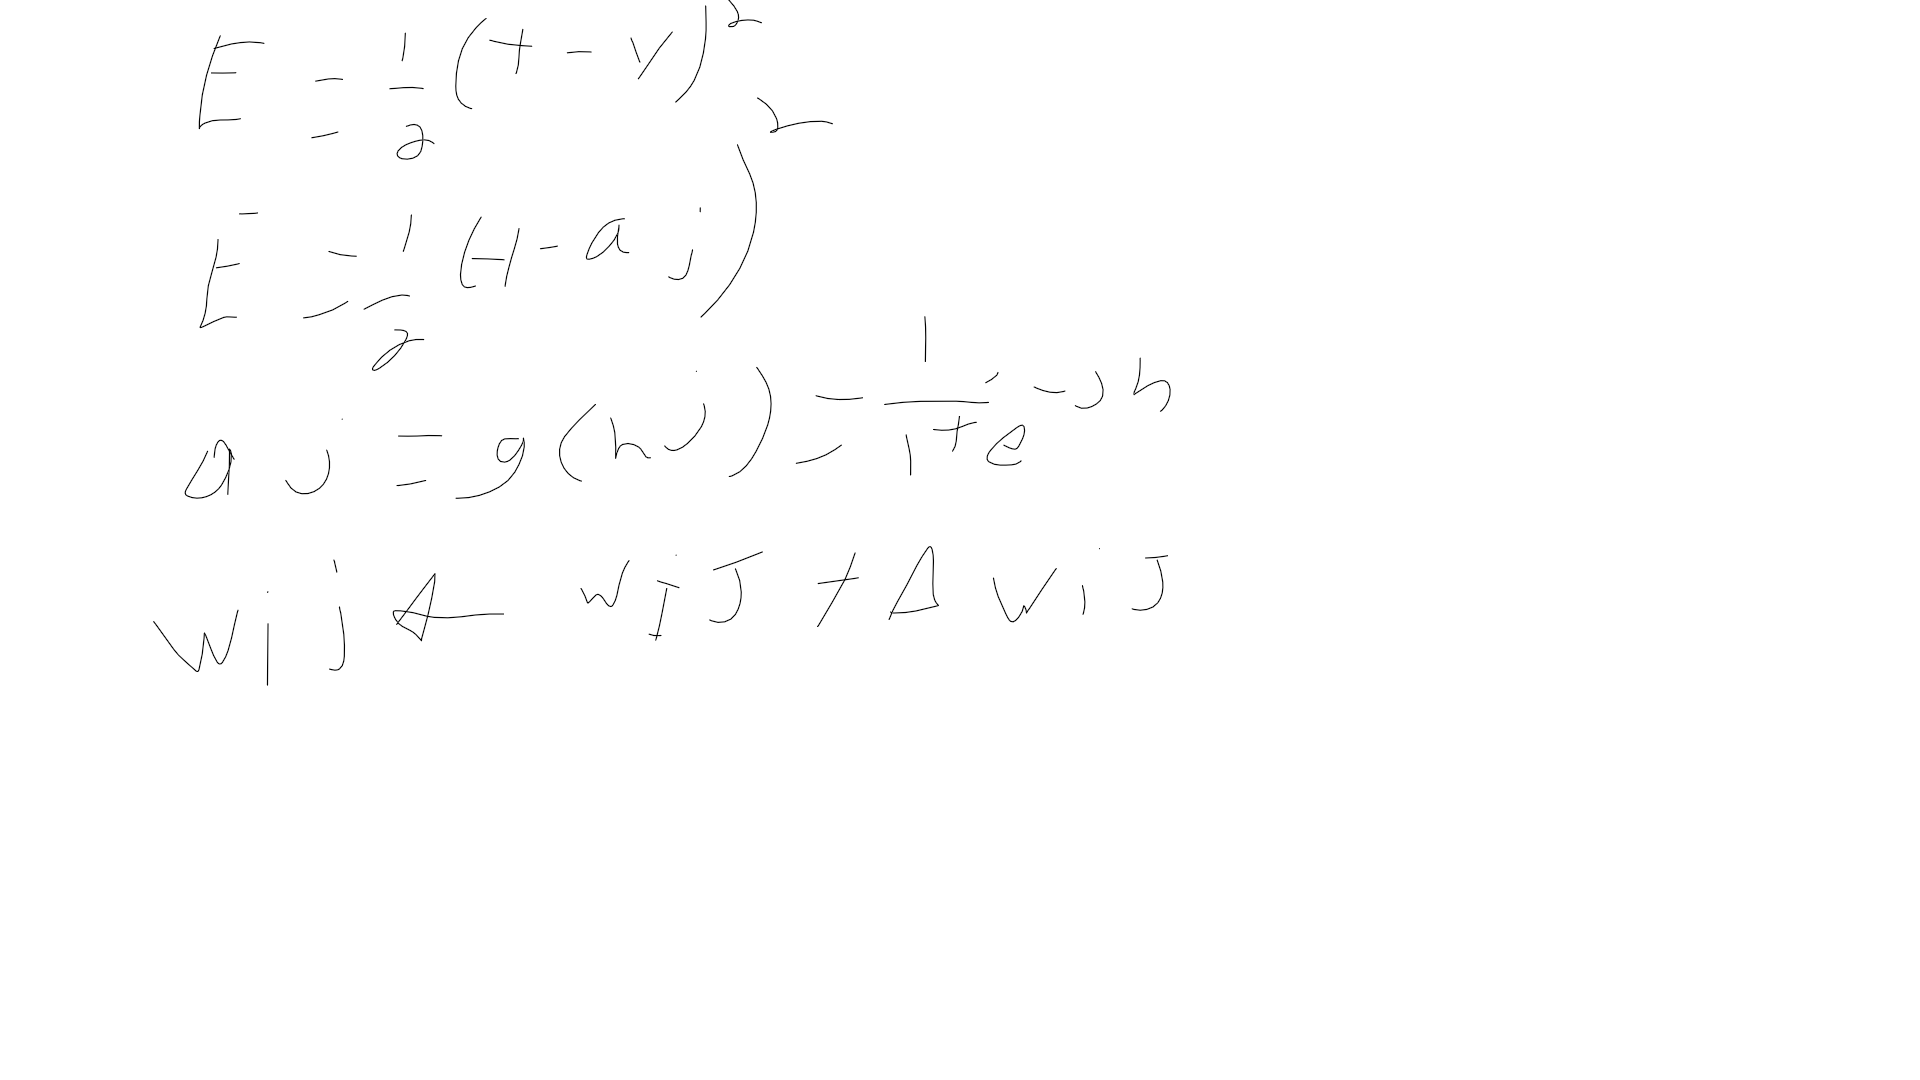 E = 1/2 (t - y)²
E = 1/2 (t - a j)²
a j = g(h j) = 1/(1 + e^(-jh))
w i j ← w i j + Δ w i j